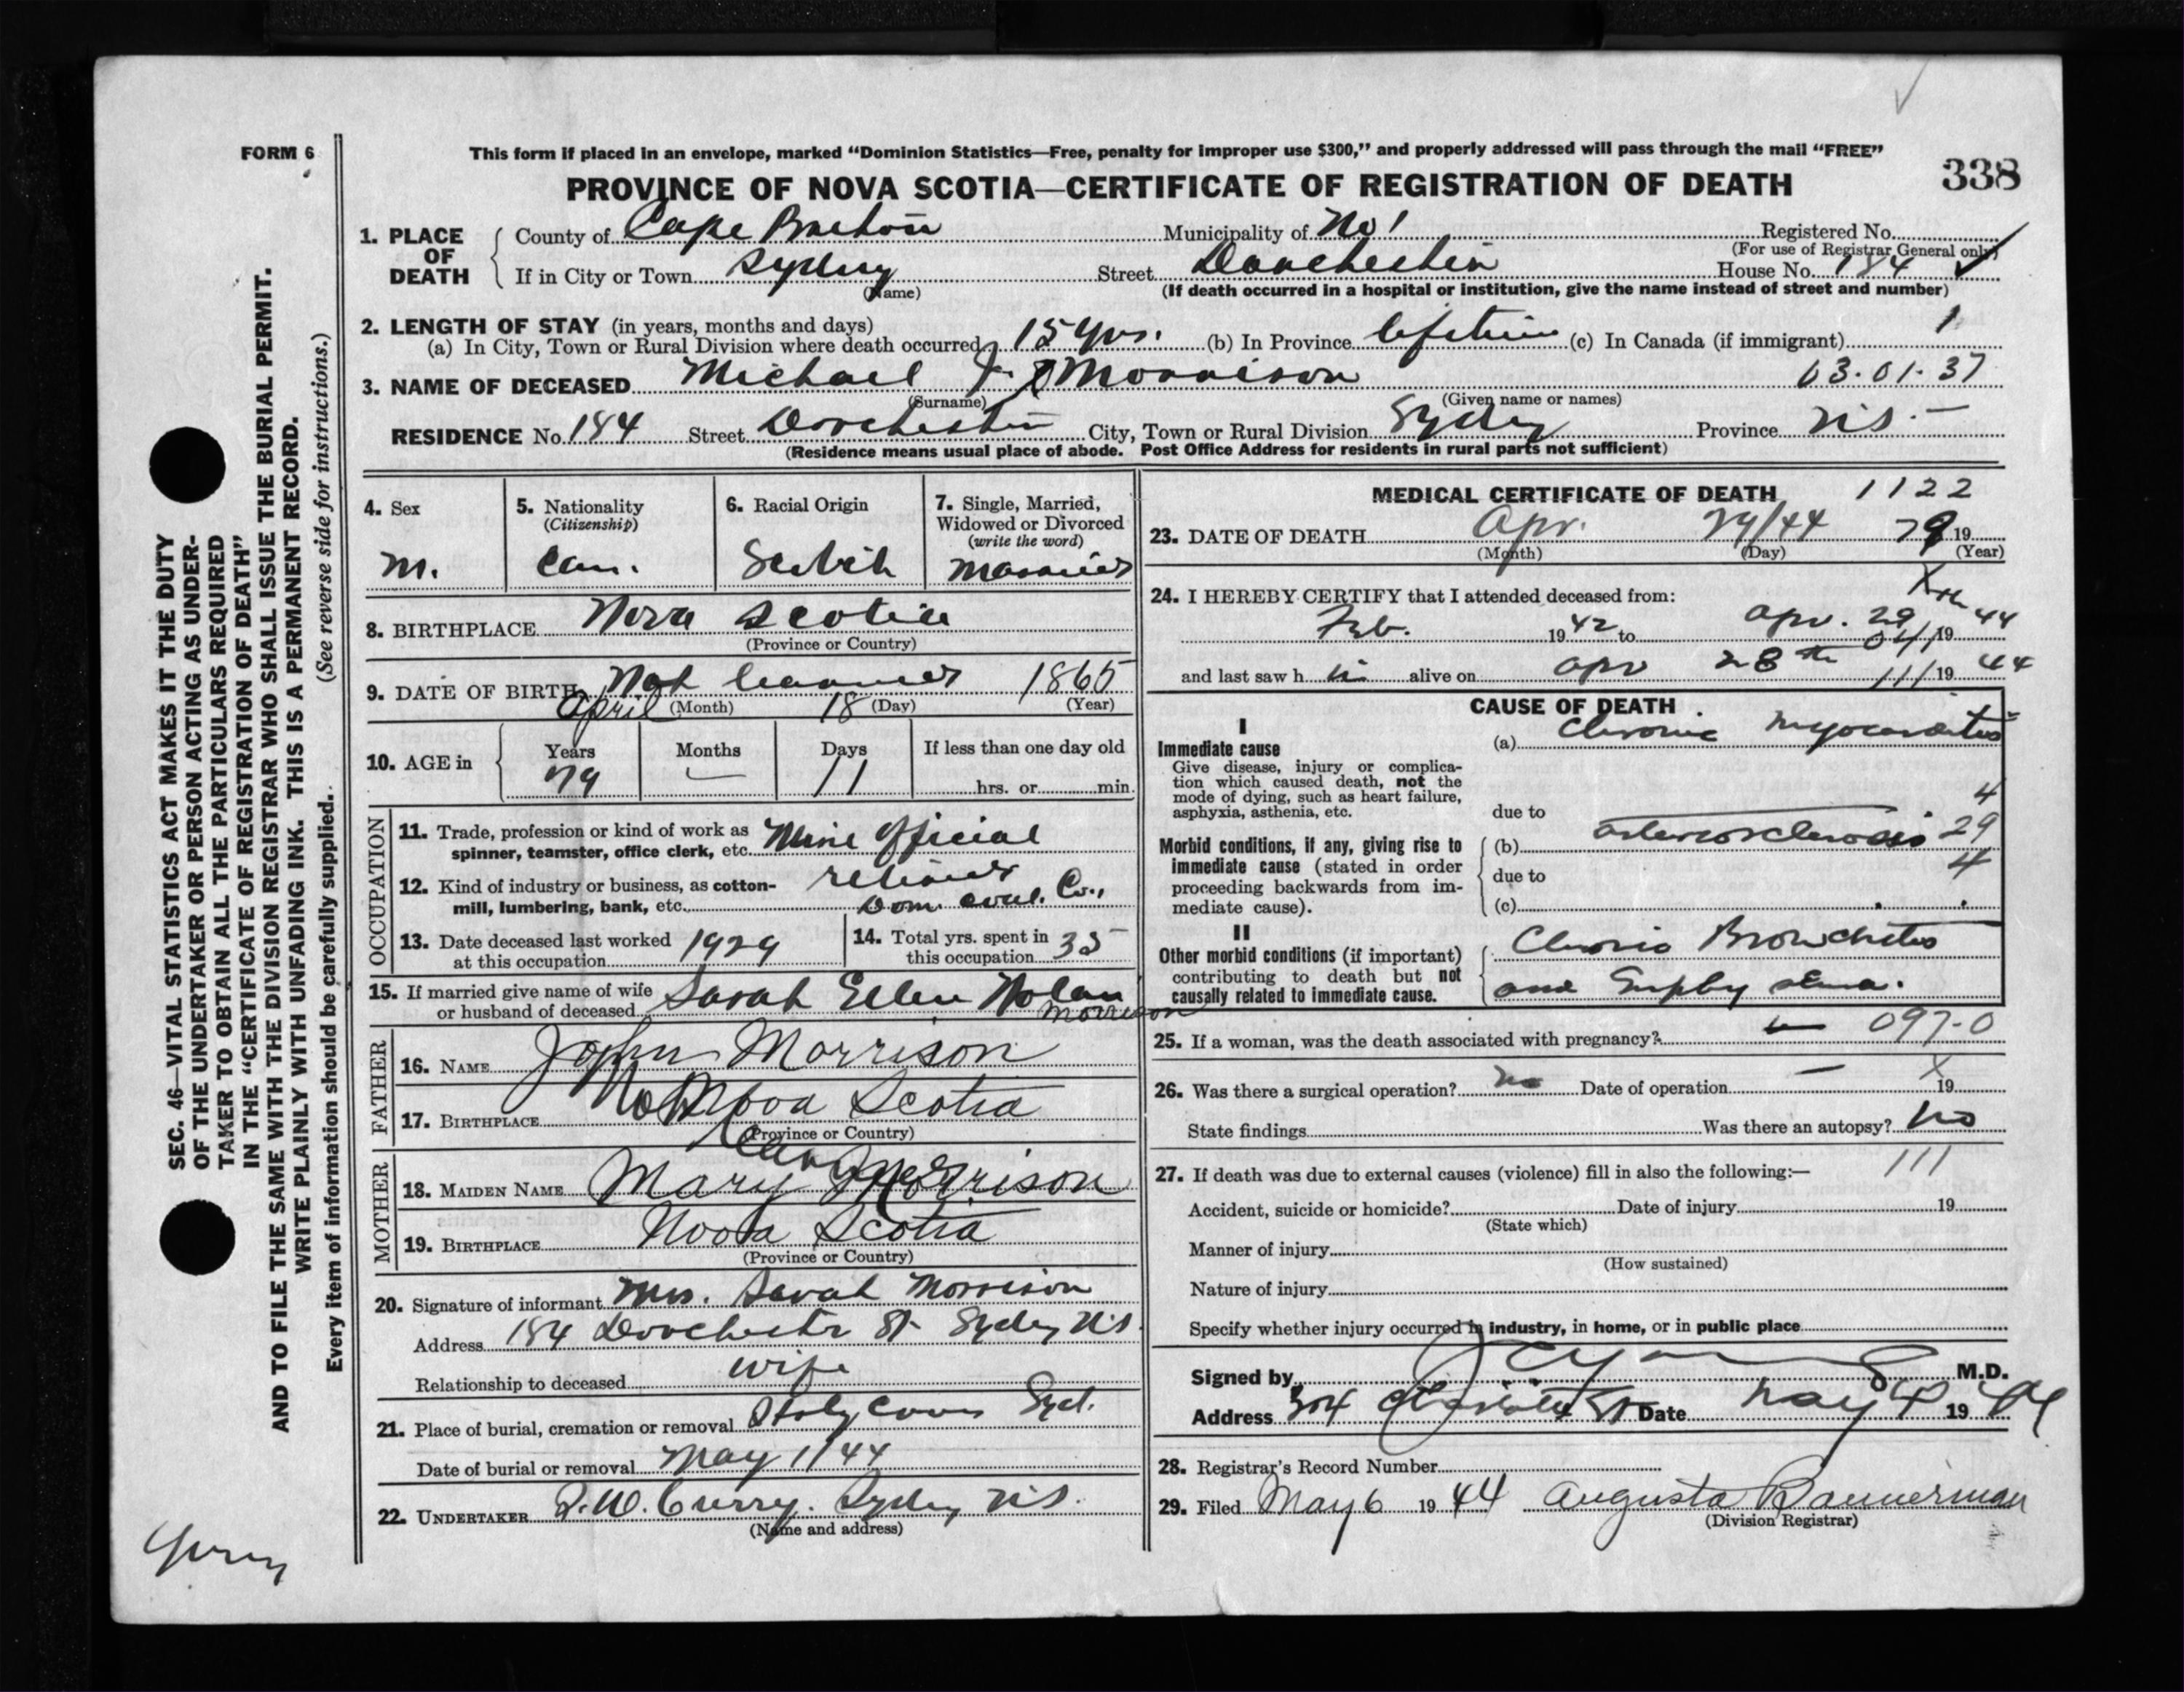 FORM 6
This form if placed in an envelope, marked “Dominion Statistics—Free, penalty for improper use $300,” and properly addressed will pass through the mail “FREE”
338
PROVINCE OF NOVA SCOTIA—CERTIFICATE OF REGISTRATION OF DEATH
1. PLACE OF DEATH
County of Cape Breton Municipality of No 1 Registered No.
(For use of Registrar General only)
If in City or Town Sydney Street Dorchester House No. 184
(Name) (If death occurred in a hospital or institution, give the name instead of street and number)
2. LENGTH OF STAY (in years, months and days)
(a) In City, Town or Rural Division where death occurred 15 yrs. (b) In Province lifetime (c) In Canada (if immigrant) 1
3. NAME OF DECEASED Michael J. Morrison 03-01-37
(Surname) (Given name or names)
RESIDENCE No. 184 Street Dorchester City, Town or Rural Division Sydney Province N.S.
(Residence means usual place of abode. Post Office Address for residents in rural parts not sufficient)
4. Sex
M.
5. Nationality
(Citizenship)
Can.
6. Racial Origin
Scotch
7. Single, Married,
Widowed or Divorced
(write the word)
Married
8. BIRTHPLACE Nova Scotia
(Province or Country)
9. DATE OF BIRTH Not 1865
April (Month) 18 (Day) (Year)
10. AGE in Years Months Days If less than one day old
79 — 11 hrs. or min.
OCCUPATION
11. Trade, profession or kind of work as
spinner, teamster, office clerk, etc. Mine Official
retired
12. Kind of industry or business, as cotton-
mill, lumbering, bank, etc. Dom. Coal. Co.,
13. Date deceased last worked
at this occupation 1929
14. Total yrs. spent in
this occupation 35
15. If married give name of wife
or husband of deceased Sarah Ellen Nolan
Morrison
FATHER
16. NAME John Morrison
17. BIRTHPLACE Nova Scotia
(Province or Country)
MOTHER
18. MAIDEN NAME Mary Morrison
19. BIRTHPLACE Nova Scotia
(Province or Country)
20. Signature of informant Mrs. Sarah Morrison
Address 184 Dorchester St. Sydney N.S.
Relationship to deceased wife
21. Place of burial, cremation or removal Holy Cross Syd.
Date of burial or removal May 1/44
22. UNDERTAKER Curry. Sydney N.S.
(Name and address)
MEDICAL CERTIFICATE OF DEATH 1122
23. DATE OF DEATH Apr. 29/44 79 19
(Month) (Day) (Year)
24. I HEREBY CERTIFY that I attended deceased from:
Feb. 1942 to Apr. 29 19 44
and last saw h im alive on Apr 28th 111 19 44
CAUSE OF DEATH
I
Immediate cause
Give disease, injury or complica-
tion which caused death, not the
mode of dying, such as heart failure,
asphyxia, asthenia, etc.
(a) Chronic Myocarditis
4
due to
Morbid conditions, if any, giving rise to
immediate cause (stated in order
proceeding backwards from im-
mediate cause).
(b) Arteriosclerosis 29
due to 4
(c)
II
Other morbid conditions (if important)
contributing to death but not
causally related to immediate cause.
Chronic Bronchitis
and Emphysema.
25. If a woman, was the death associated with pregnancy? 097-0
26. Was there a surgical operation? no Date of operation — X 19
State findings Was there an autopsy? No
111
27. If death was due to external causes (violence) fill in also the following:—
Accident, suicide or homicide? Date of injury 19
(State which)
Manner of injury
(How sustained)
Nature of injury
Specify whether injury occurred in industry, in home, or in public place
Signed by M.D.
Address 304 Charlotte St Date May 4 19 44
28. Registrar's Record Number
29. Filed May 6 19 44 Augusta Bannerman
(Division Registrar)
SEC. 46—VITAL STATISTICS ACT MAKES IT THE DUTY
OF THE UNDERTAKER OR PERSON ACTING AS UNDER-
TAKER TO OBTAIN ALL THE PARTICULARS REQUIRED
IN THE “CERTIFICATE OF REGISTRATION OF DEATH”
AND TO FILE THE SAME WITH THE DIVISION REGISTRAR WHO SHALL ISSUE THE BURIAL PERMIT.
WRITE PLAINLY WITH UNFADING INK. THIS IS A PERMANENT RECORD.
Every item of information should be carefully supplied. (See reverse side for instructions.)